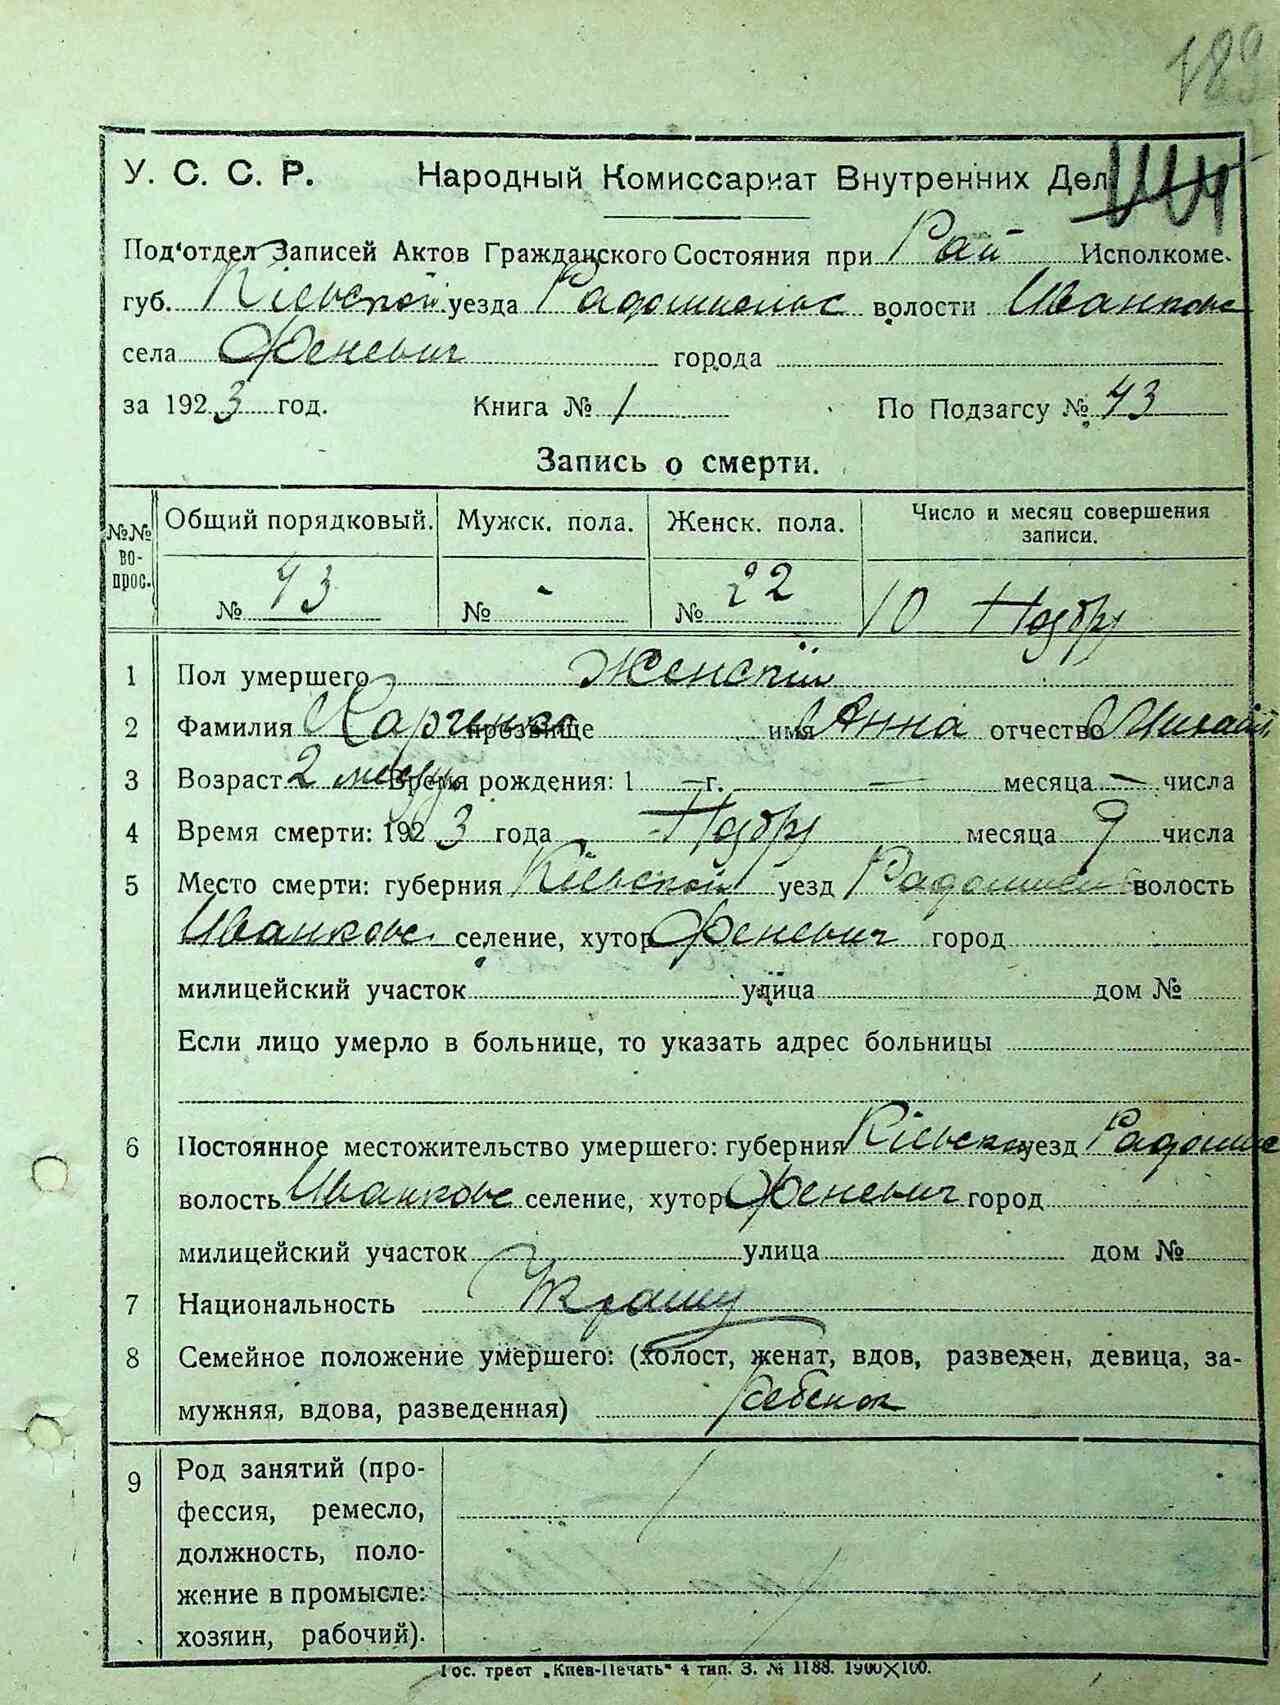 У. С. С. Р. Народный Комиссариат Внутренних Дел
Под'отдел Записей Актов Гражданского Состояния при Рай Исполкоме.
губ. Кіевской уезда Радомысльс волости Иванковс
села Феневич города
за 1923 год. Книга № 1 По Подзагсу № 43
Запись о смерти.
№№ вопрос. Общий порядковый. Мужск. пола. Женск. пола. Число и месяц совершения записи.
№ 43 № - № 22 10 Ноябр
1 Пол умершего Женскій
2 Фамилия Харченко прозвище имя Анна отчество Михайл
3 Возраст 2 Время рождения: 1 — г. — месяца — числа
4 Время смерти: 1923 года Ноябр месяца 9 числа
5 Место смерти: губерния Кіевской уезд Радомысл волость
Иванковс селение, хутор Феневич город
милицейский участок улица дом №
Если лицо умерло в больнице, то указать адрес больницы
6 Постоянное местожительство умершего: губерния Кіевской уезд Радомыс
волость Иванковс селение, хутор Феневич город
милицейский участок улица дом №
7 Национальность
8 Семейное положение умершего: (холост, женат, вдов, разведен, девица, за-
мужняя, вдова, разведенная) Ребенок
9 Род занятий (про-
фессия, ремесло,
должность, поло-
жение в промысле:
хозяин, рабочий).
Гос. трест „Киев-Печать" 4 тип. З. № 1188. 1900×100.